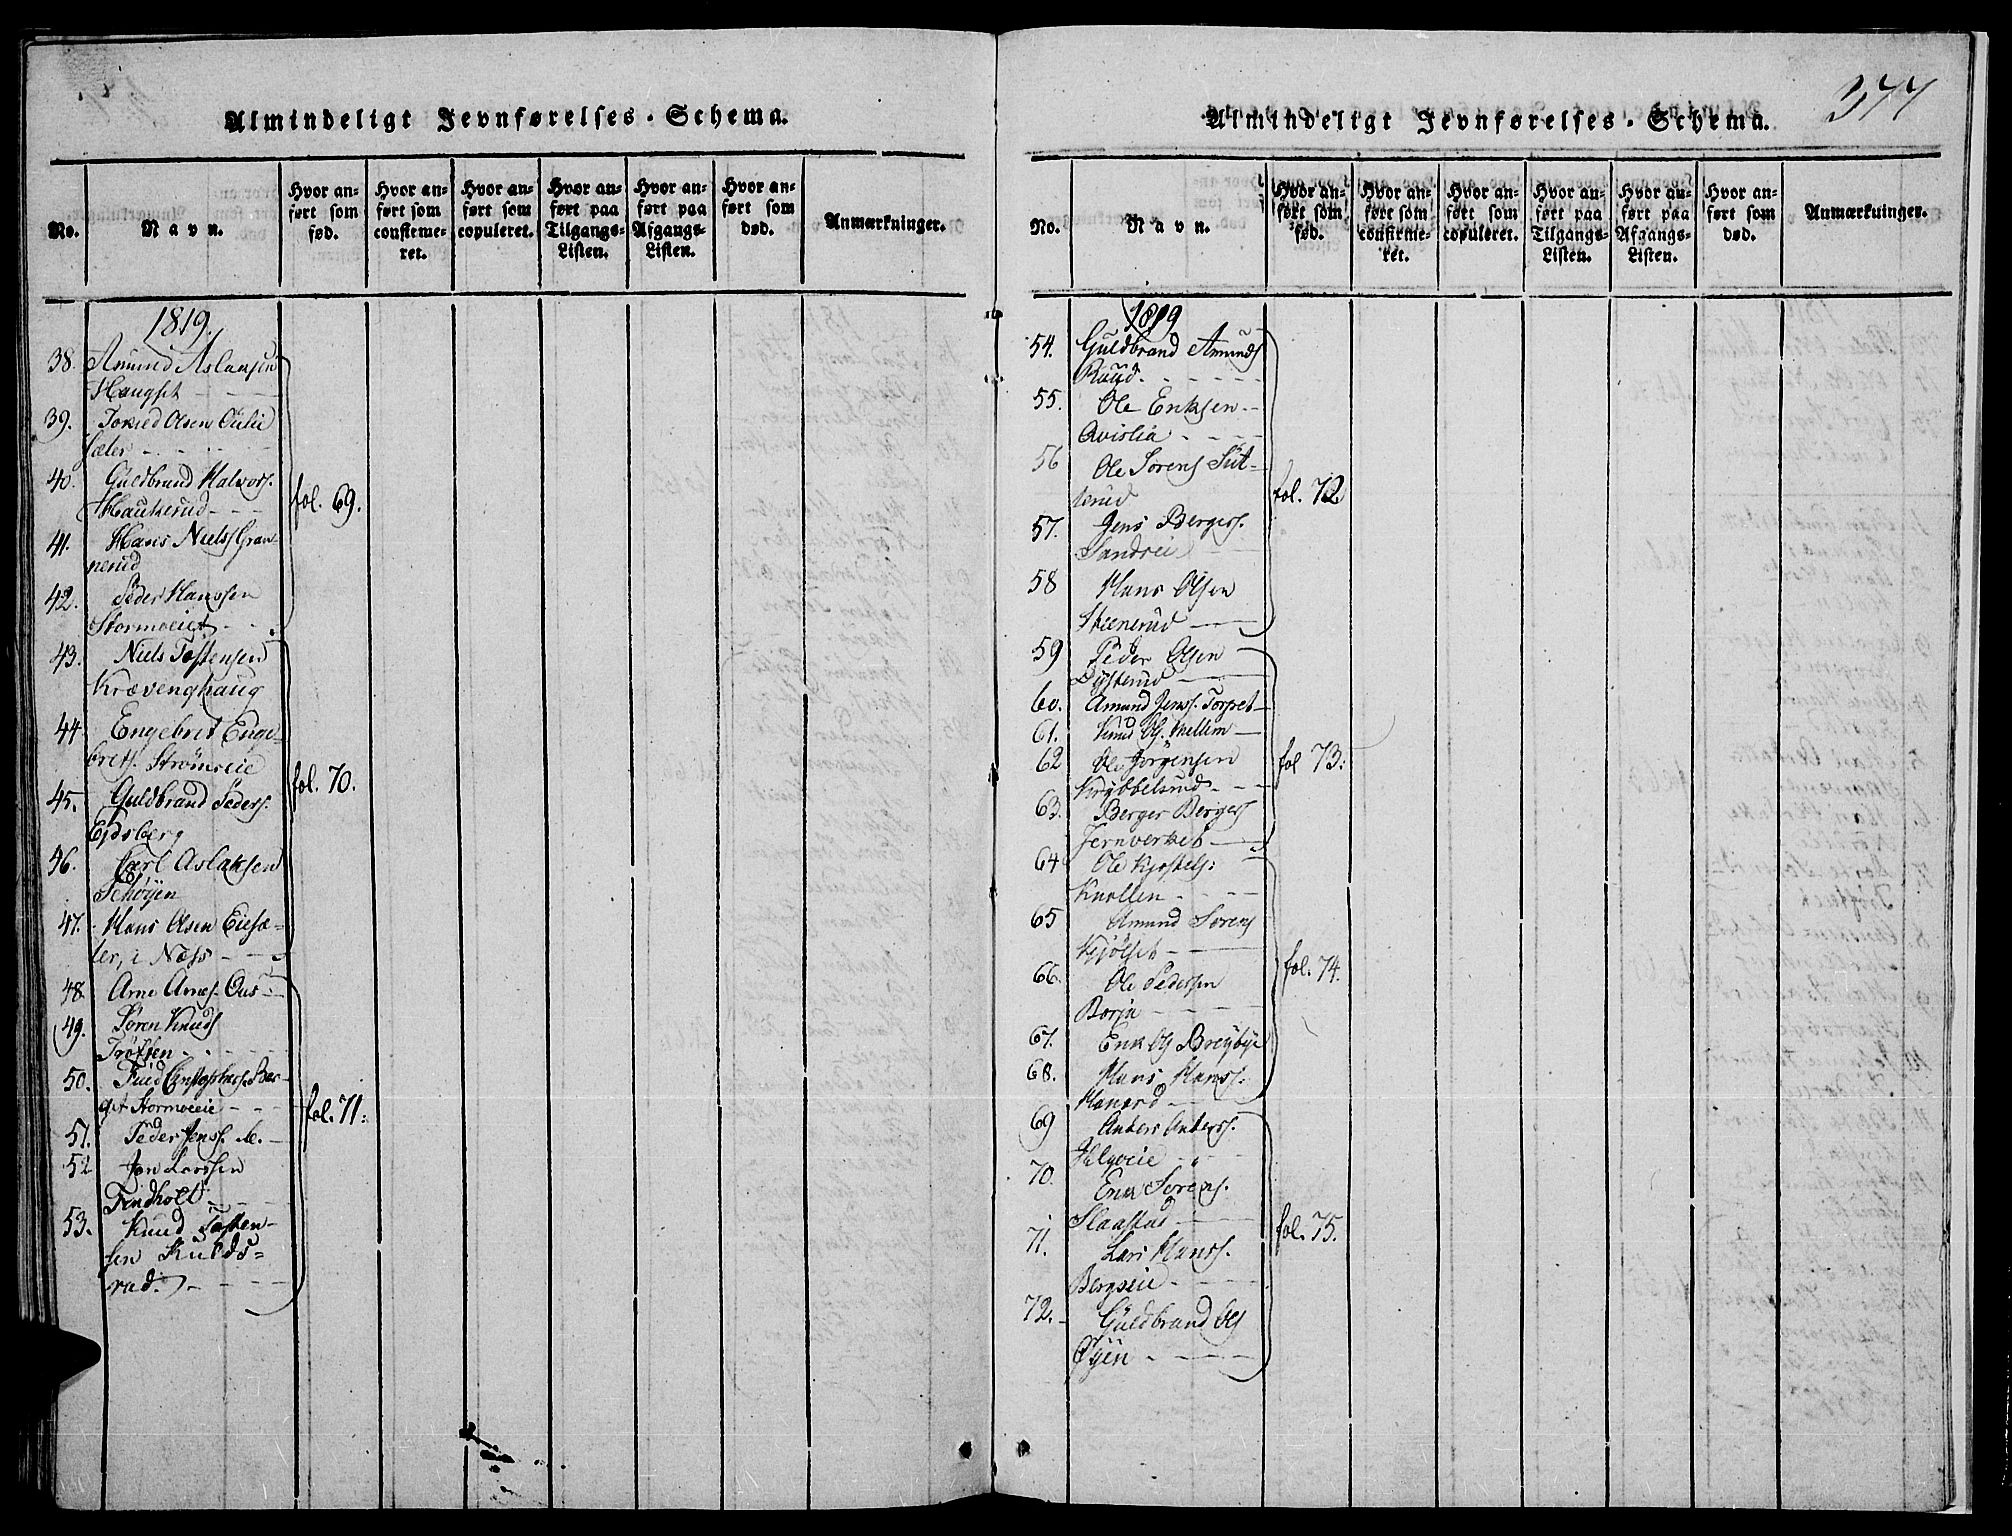 Almindeligt Jevnførelses-Schema.
No.
Navn.
Hvor an-
ført som
fød.
Hvor an-
ført som
confirme-
ret.
Hvor an-
ført som
copuleret.
Hvor an-
ført paa
Tilgangs-
Listen.
Hvor an-
ført paa
Afgangs-
Listen.
Hvor an-
ført som
død.
Anmærkninger.
1819.
38. Amund Aslaksen
Haugset
39. Olsen
sæter
40. Guldbrand Halvors.
Haukerud
fol. 69.
41. Hans Niels Gran-
nerud
42. Peder Hanssen
Stormoeiet
43. Niels Tostensen
Krævenghaug
44. Engebret Enge-
brets. Strømseie
45. Guldbrand Peders.
Ejdsberg
fol. 70.
46. Carl Aslaksen
Schøyen
47. Hans Olsen Eiesæ-
ter, i Næss
48. Arne Arnes.
49. Søren Knuds
50. Christophers. Ber-
get Stormoeie
fol. 71:
51. Peder Jenss.
52 Jon Larssen
Findholt
53. Knud Tosten-
sen Kulds-
rud.
Almindeligt Jevnførelses-Schema.
377
No.
Navn.
Hvor an-
ført som
fød.
Hvor an-
ført som
confirme-
ret.
Hvor an-
ført som
copuleret.
Hvor an-
ført paa
Tilgangs-
Listen.
Hvor an-
ført paa
Afgangs-
Listen.
Hvor an-
ført som
død.
Anmærkninger.
1819
54. Guldbrand Amunds
Ruud.
55. Ole Eriksen
Qvislia
56 Ole Sorens Sut-
terud
fol. 72
57. Jens Bergers.
Sandeie
58 Hans Olsen
Steenerud
59 Peder Olsen
Dysterud
60. Amund Jenss. Torget
61. Knud Ols. Mellem
62 Ole Jørgensen
Krybbelsrud
fol 73:
63. Berger Bergers
Jernverket
64 Ole Kjostels:
Knollen
65 Amund Sorens
Kjølset
66. Ole Pedersen
Borja
fol. 74.
67. Erik Ols Breybye
68. Hans Hanss.
69 Anders Anderss.
Helgeeie
70. Erik Sorens.
Slaastad
71. Lars Hanss.
Bergseie
fol. 75.
72. Guldbrand Ols
Øyen